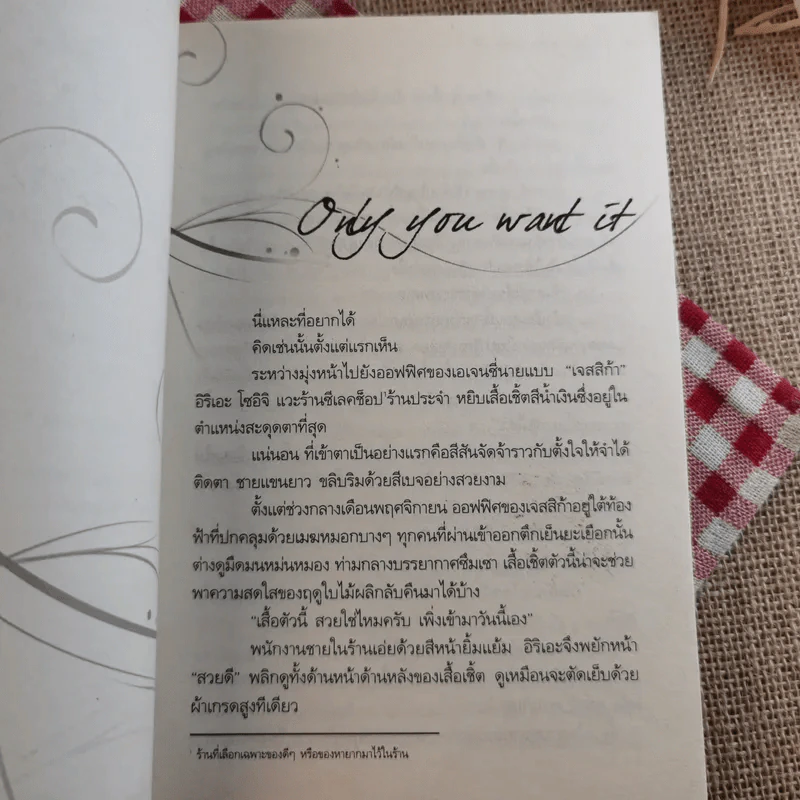 Only you want it
นี่แหละที่อยากได้
คิดเช่นนั้นตั้งแต่แรกเห็น
ระหว่างมุ่งหน้าไปยังออฟฟิศของเอเจนซี่นายแบบ “เจสสิก้า”
อิริเอะ โซอิจิ แวะร้านซีเลคช็อป¹ร้านประจำ หยิบเสื้อเชิ้ตสีน้ำเงินซึ่งอยู่ใน
ตำแหน่งสะดุดตาที่สุด
แน่นอน ที่เข้าตาเป็นอย่างแรกคือสีสันจัดจ้าราวกับตั้งใจให้จำได้
ติดตา ชายแขนยาว ขลิบริมด้วยสีเบจอย่างสวยงาม
ตั้งแต่ช่วงกลางเดือนพฤศจิกายน ออฟฟิศของเจสสิก้าอยู่ใต้ท้อง
ฟ้าที่ปกคลุมด้วยเมฆหมอกบางๆ ทุกคนที่ผ่านเข้าออกตึกเย็นยะเยือกนั้น
ต่างดูมืดมนหม่นหมอง ท่ามกลางบรรยากาศซึมเซา เสื้อเชิ้ตตัวนี้น่าจะช่วย
พาความสดใสของฤดูใบไม้ผลิกลับคืนมาได้บ้าง
“เสื้อตัวนี้ สวยใช่ไหมครับ เพิ่งเข้ามาวันนี้เอง”
พนักงานชายในร้านเอ่ยด้วยสีหน้ายิ้มแย้ม อิริเอะจึงพยักหน้า
“สวยดี” พลิกดูทั้งด้านหน้าด้านหลังของเสื้อเชิ้ต ดูเหมือนจะตัดเย็บด้วย
ผ้าเกรดสูงทีเดียว
¹ ร้านที่เลือกเฉพาะของดีๆ หรือของหายากมาไว้ในร้าน